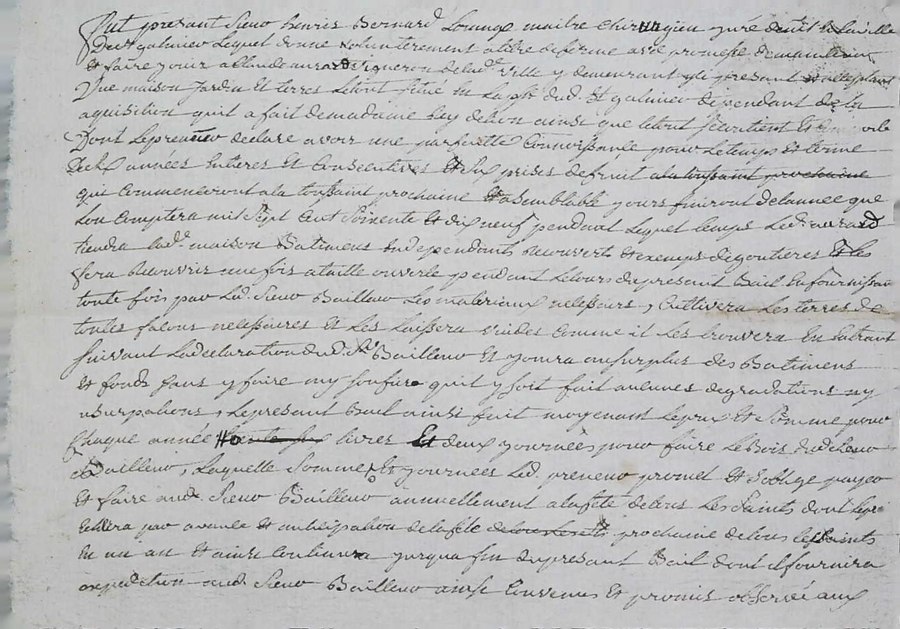 Fut present Sieur henris Bernard Lorange maitre chirurgien juré demt en la ville
de St galmier Lequel donne volonterement a titre de ferme avec promesse de maintenir
et faire jouir a Claude aurard vigneron de lad. ville y demeurant icy present et acceptant
Une maison Jardin et terres Letout situé en la psse dud. St galmier dependant de la
aquisition quil a fait de madame Ley de Lion ainsi que letout secontient et
Dont Le preneur declare avoir une parfaitte Connoissance pour Letemps et terme
De six années Entieres et Consecutives et six prises de fruit a la toussaint prochaine
qui Commenceront a la toussaint prochaine et a semblable jours finiront de lannee que
Lon Comptera mil Sept Cent Soixente et dix neuf pendant Lequel temps Led. aurard
tiendra lad. maison Batimens Endependants recouverts et exempt de goutieres et les
fera recouvrir une fois a taille ouverte pendant Le cours du present Bail En fournissan
toute fois par Led. Sieur Bailleur Les materiaux nesessaire, Cultivera Les terres de
toutes falons nesessaires et Les Laissera vuides Comme il Les trouvera En Entrant
Suivant La declaration dud. Sr Bailleur Et jouira au surplus des Batimens
et fonds sans y faire ny souffrir quil y soit fait aucunes degradations ny
usurpations, Le present Bail ainsi fait moyenant Le prix Et Somme pour
Chaque année trente six livres Et deux journées pour faire Le Bois dud. Sieur
Bailleur, Laquelle Somme Et journées Led. preneur promet et soblige payer
et faire aud. Sieur Bailleur annuellement a la fete de tous Les Saints dont Le pr
Entrera par avance et anticipation de la fete de tous Les Sts prochaine de tous les Saints
En un an et ainsi Continuera jusqua fin du present Bail dont il fournira
expedition aud. Sieur Bailleur ainsi Convenus Et promis observé aux